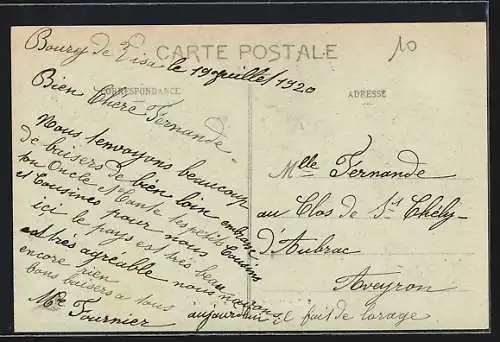 CARTE POSTALE
10
Bourg de Visa le 19 juillet 1920
CORRESPONDANCE
ADRESSE
Bien Chère Fernande
Nous t'envoyons beaucoup
de baisers de bien loin embrasse
ton Oncle Tante tes petits Cousins
et Cousines pour nous
ici le pays est très beau
est très agreable nous n'avons
encore rien
bons baisers a tous
Mme Fournier
aujourdui il fait de lorage
Mlle Fernande
au Clos de St Chély-
d'Aubrac
Aveyron